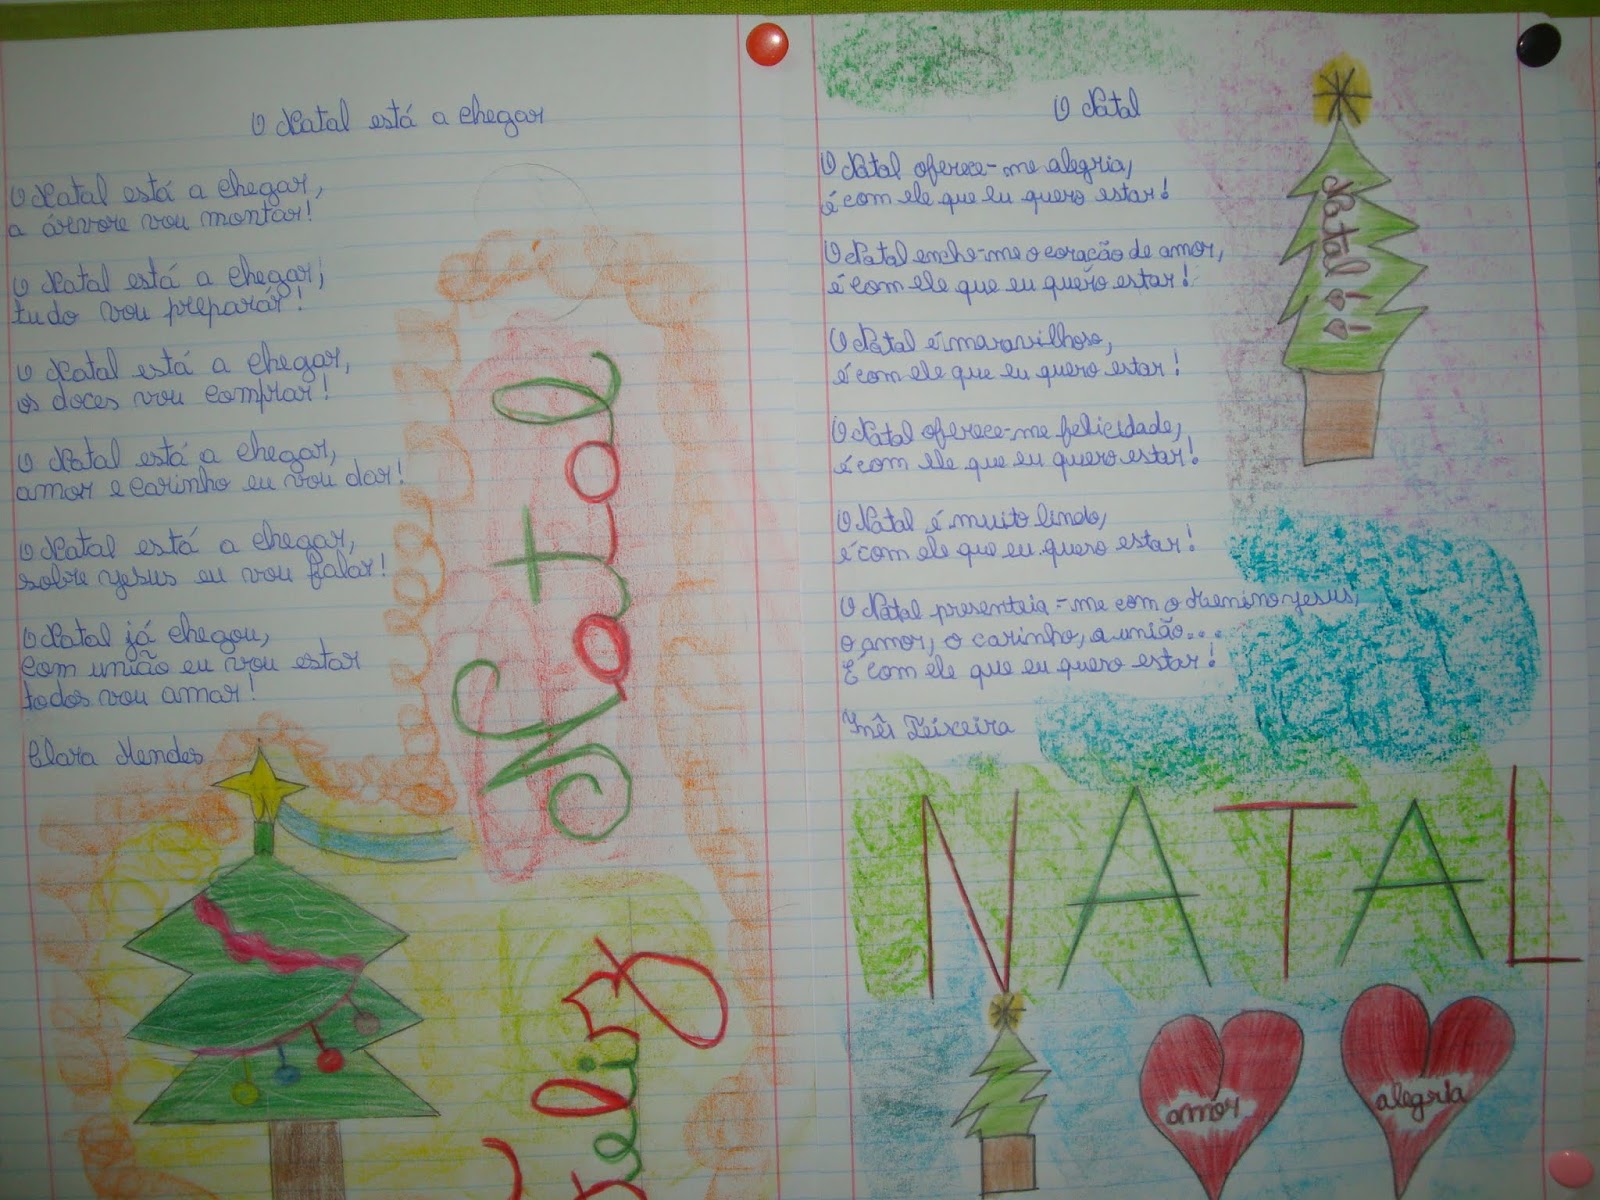 O Natal está a chegar
O Natal está a chegar,
a árvore vou montar!
O Natal está a chegar,
tudo vou preparar!
O Natal está a chegar,
os doces vou comprar!
O Natal está a chegar,
amor e carinho eu vou dar!
O Natal está a chegar,
sobre Jesus eu vou falar!
O Natal já chegou,
com união eu vou estar
todos vou amar!
Clara Mendes
Feliz
Natal
O Natal
O Natal oferece-me alegria,
é com ele que eu quero estar!
O Natal enche-me o coração de amor,
é com ele que eu quero estar!
O Natal é maravilhoso,
é com ele que eu quero estar!
O Natal oferece-me felicidade,
é com ele que eu quero estar!
O Natal é muito lindo,
é com ele que eu quero estar!
O Natal presenteia-me com o Menino Jesus,
o amor, o carinho, a união...
É com ele que eu quero estar!
Inês Teixeira
Natal!!
NATAL
amor
alegria